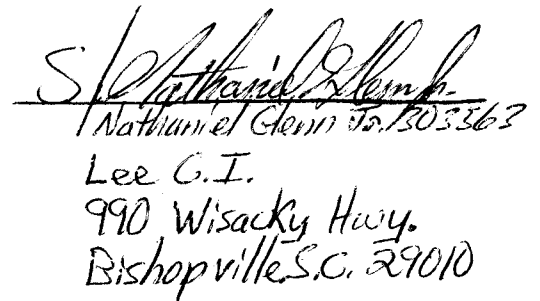 S/ Nathaniel Glenn Jr.
Nathaniel Glenn Jr. 303363
Lee C.I.
990 Wisacky Hwy.
Bishopville S.C. 29010